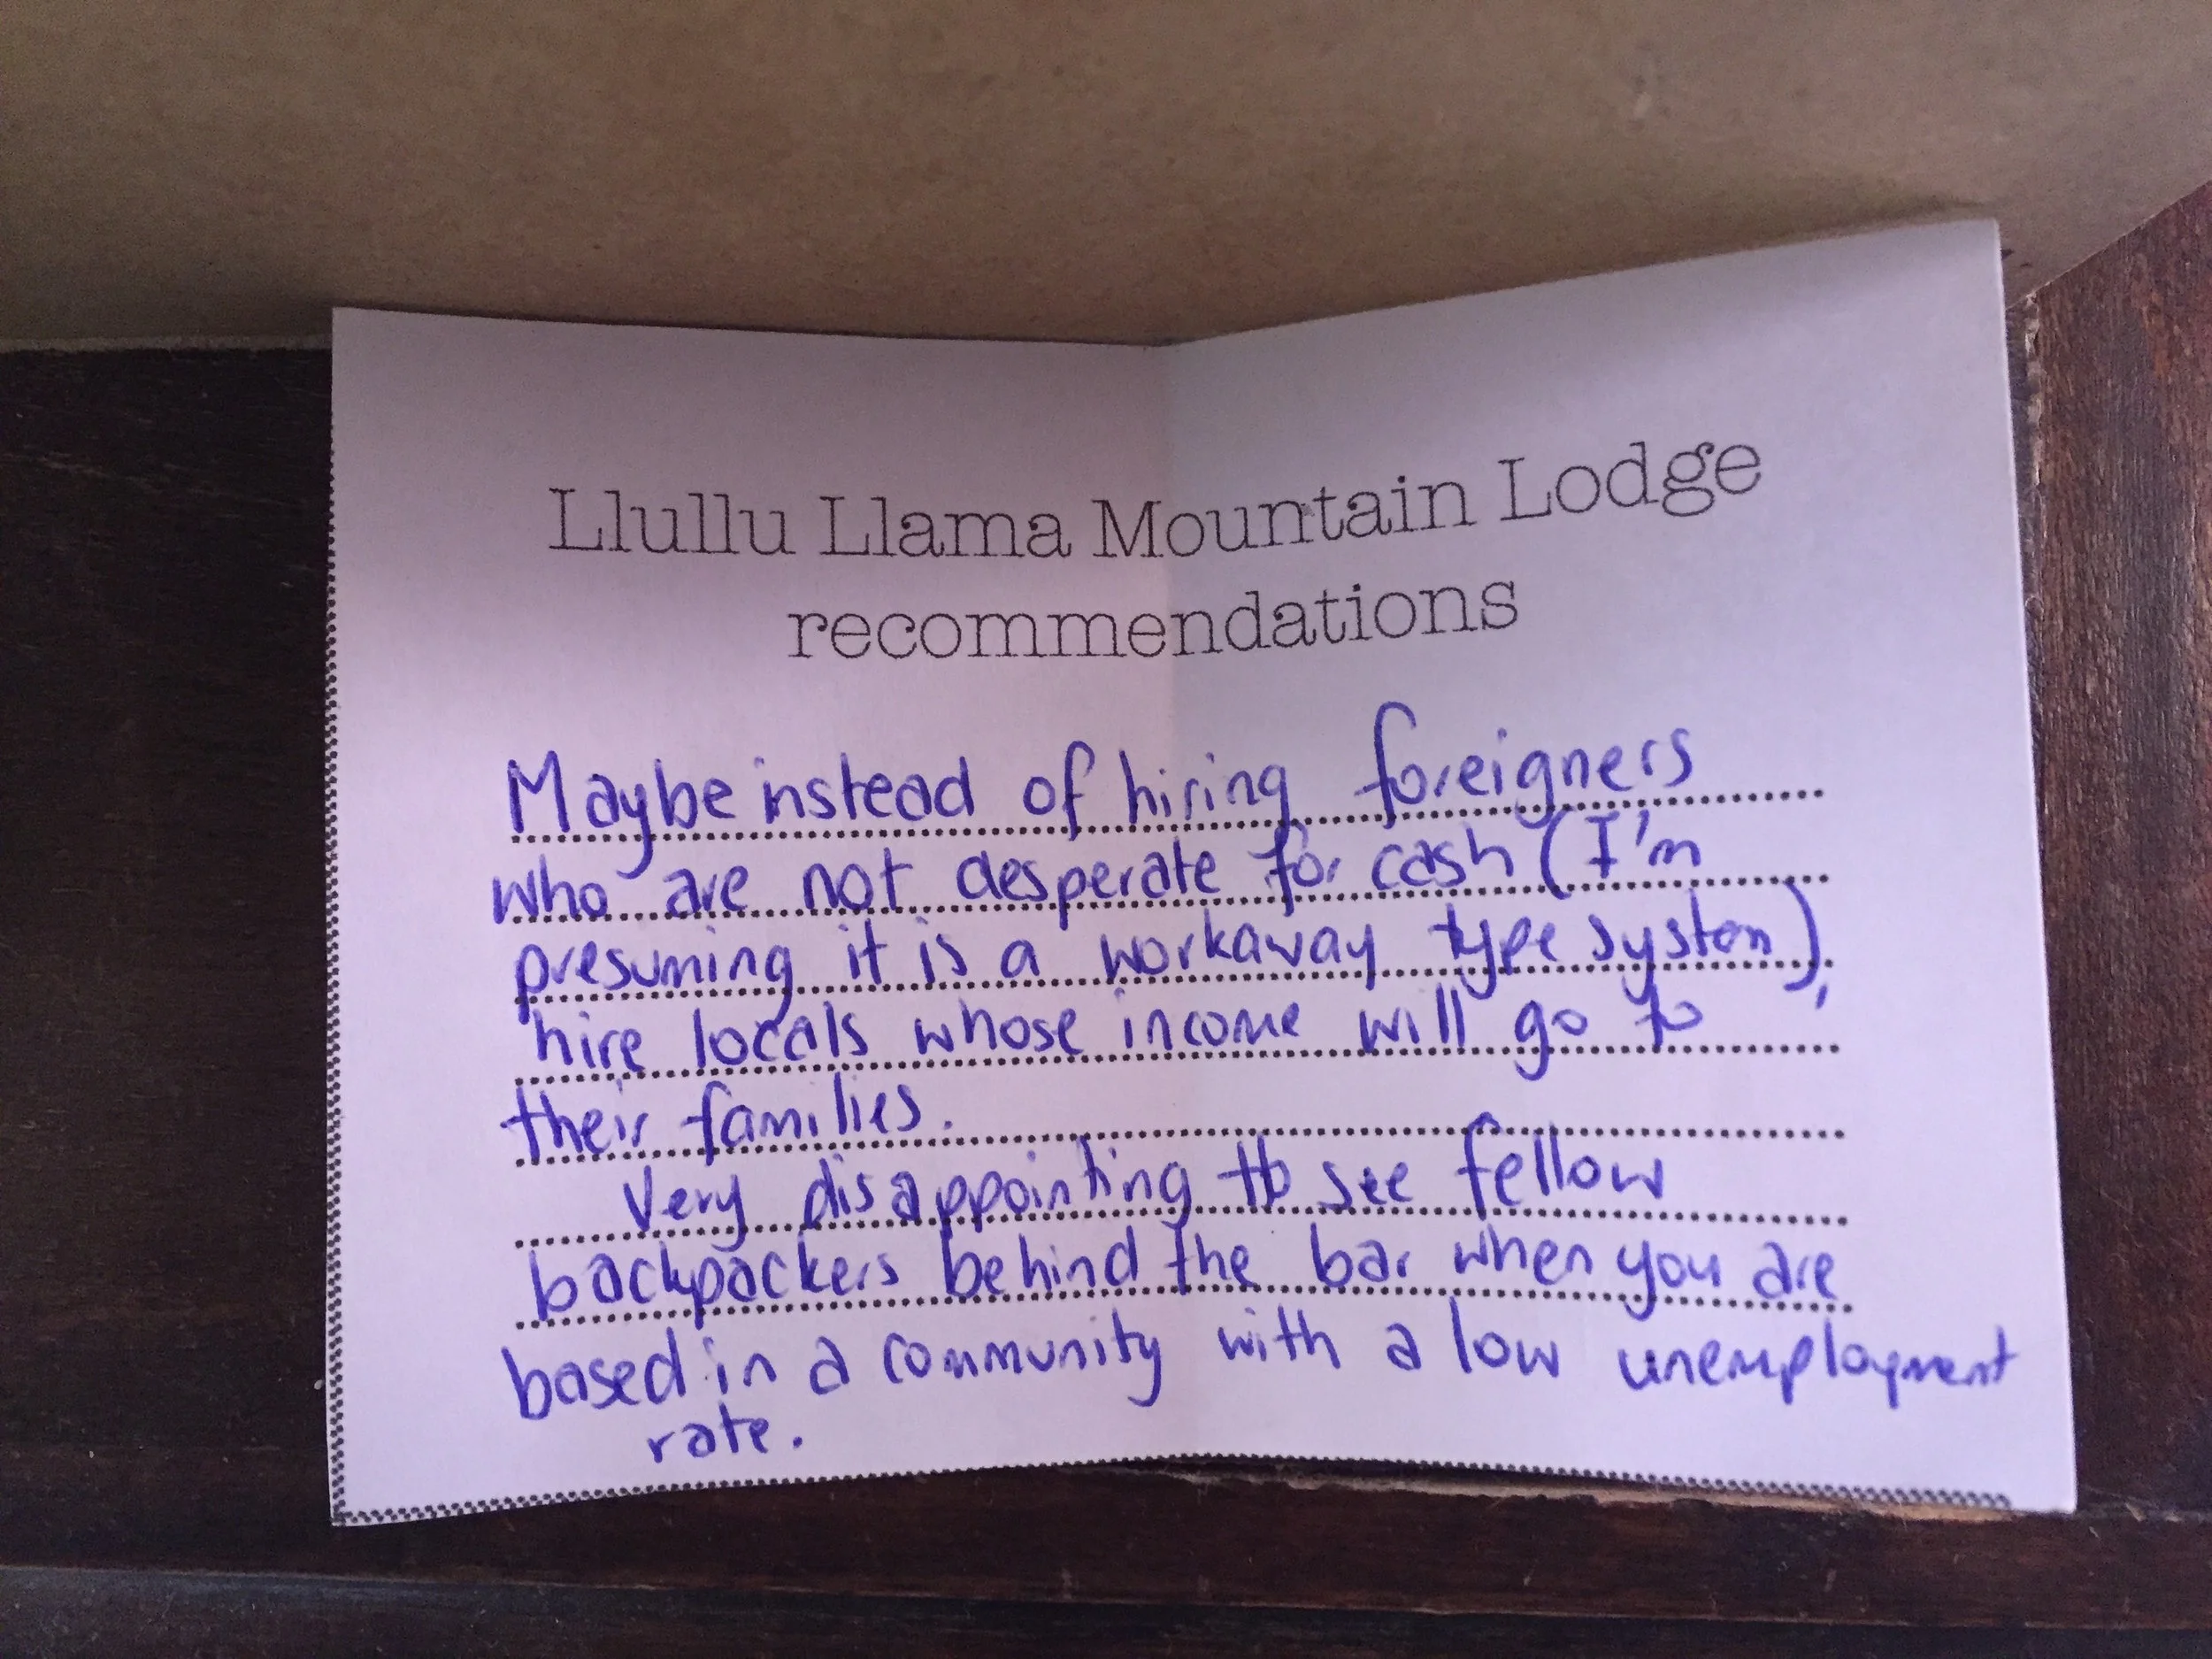 Llullu Llama Mountain Lodge
recommendations
Maybe instead of hiring foreigners
who are not desperate for cash (I'm
presuming it is a workaway type system),
hire locals whose income will go to
their families.
Very disappointing to see fellow
backpackers behind the bar when you are
based in a community with a low unemployment
rate.